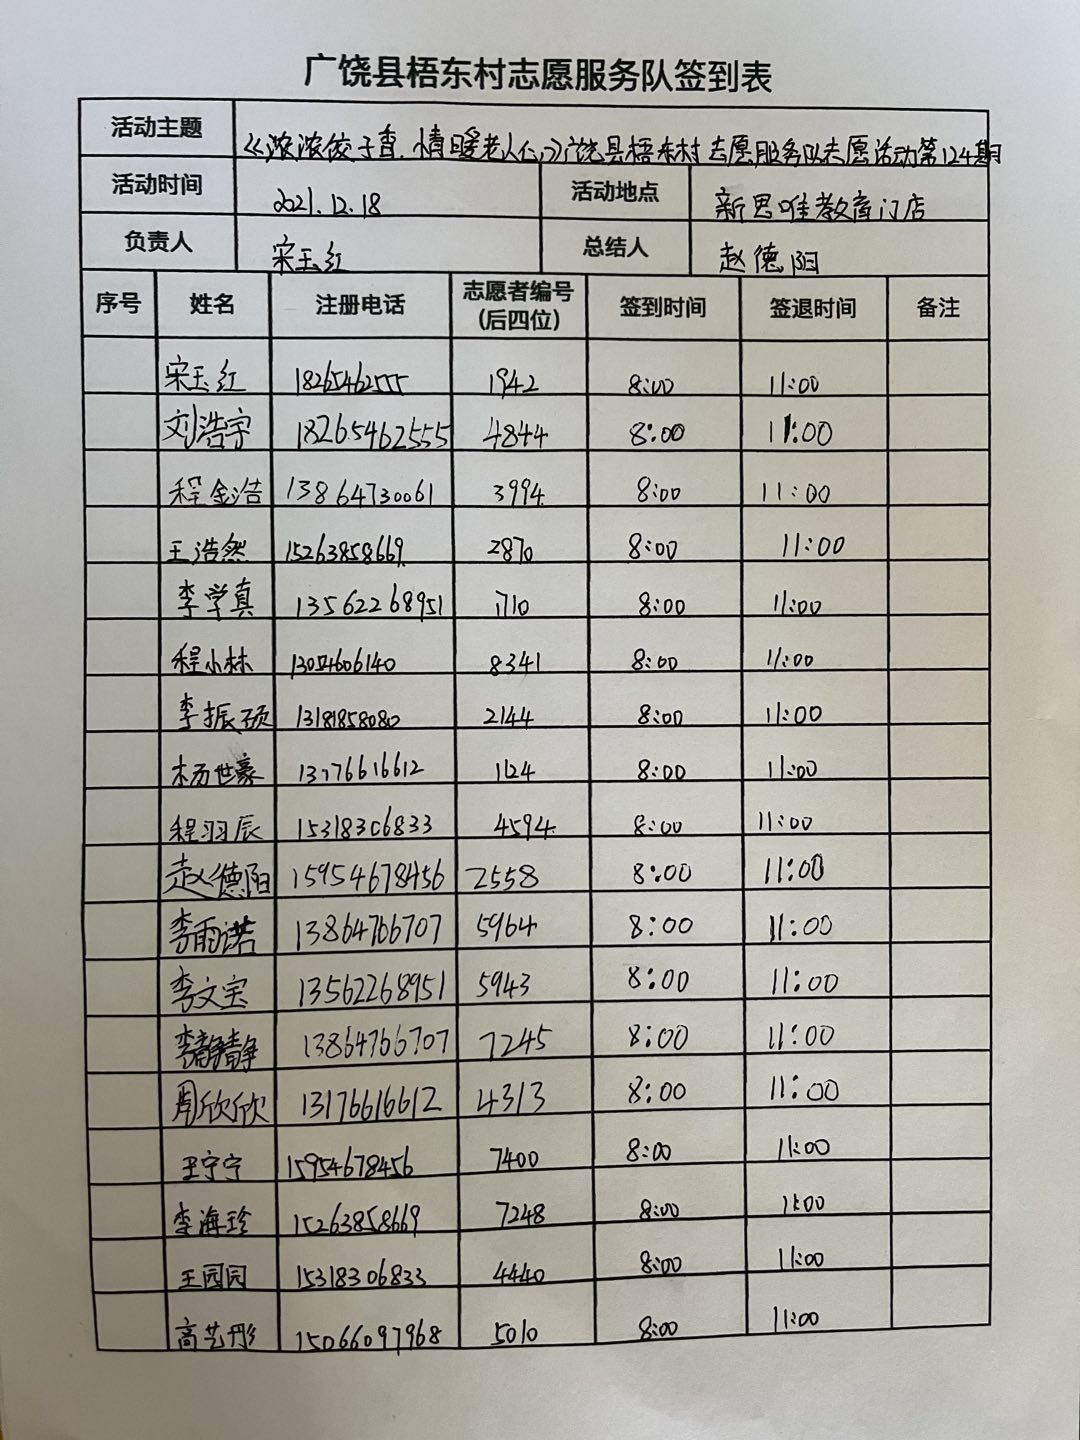 广饶县梧东村志愿服务队签到表
活动主题 《浓浓饺子香，情暖老人心》广饶县梧东村志愿服务队志愿活动第124期
活动时间 2021.12.18 活动地点 新思唯教育门店
负责人 宋玉红 总结人 赵德阳
序号 姓名 注册电话 志愿者编号 签到时间 签退时间 备注
(后四位)
宋玉红 18265462555 1942 8:00 11:00
刘浩宇 18265462555 4844 8:00 11:00
程金浩 13864730061 3994 8:00 11:00
王浩然 15263858669 2870 8:00 11:00
李学真 13562268951 1710 8:00 11:00
程小林 8341 8:00 11:00
李振硕 13181858080 2144 8:00 11:00
杨世豪 13176616612 1124 8:00 11:00
程羽辰 15318306833 4594 8:00 11:00
赵德阳 15954678456 2558 8:00 11:00
李雨诺 13864766707 5964 8:00 11:00
李文宝 13562268951 5943 8:00 11:00
李静静 13864766707 7245 8:00 11:00
周欣欣 13176616612 4313 8:00 11:00
王宁宁 15954678456 7400 8:00 11:00
李海珍 15263858669 7248 8:00 11:00
王园园 15318306833 4440 8:00 11:00
高艺彤 15066097968 5010 8:00 11:00